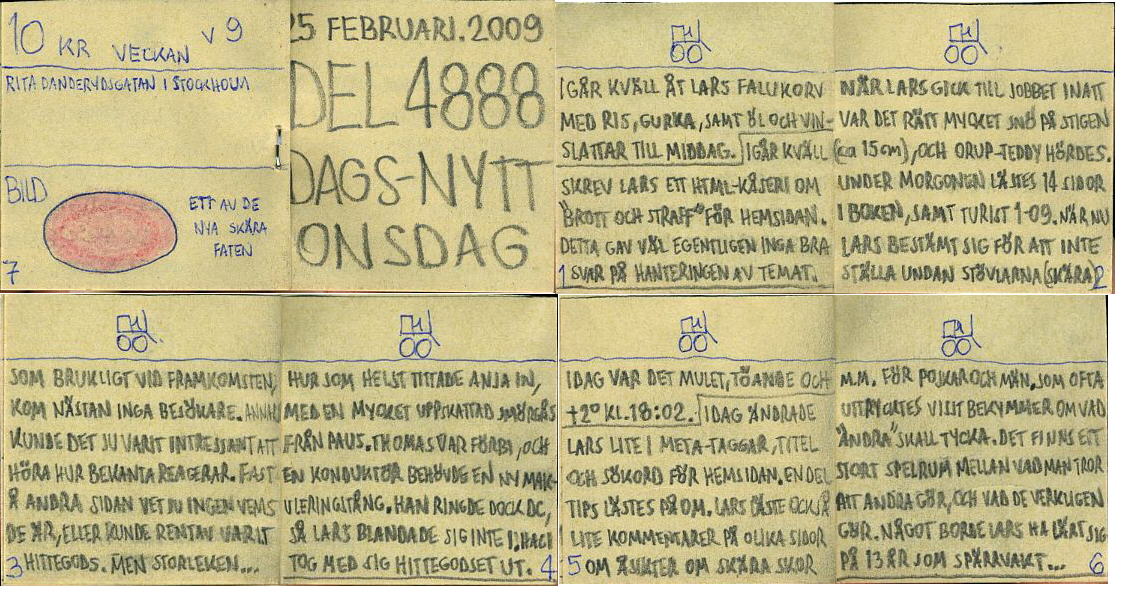 10 KR VECKAN V 9
RITA DANDERYDSGATAN I STOCKHOLM
BILD
ETT AV DE
NYA SKÄRA
FATEN
7
25 FEBRUARI. 2009
DEL 4888
DAGS-NYTT
ONSDAG
IGÅR KVÄLL ÅT LARS FALUKORV
MED RIS, GURKA, SAMT ÖL OCH VIN-
SLATTAR TILL MIDDAG. IGÅR KVÄLL
SKREV LARS ETT HTML-KÅSERI OM
"BROTT OCH STRAFF" FÖR HEMSIDAN.
DETTA GAV VÄL EGENTLIGEN INGA BRA
SVAR PÅ HANTERINGEN AV TEMAT.
1
NÄR LARS GICK TILL JOBBET INATT
VAR DET RÄTT MYCKET SNÖ PÅ STIGEN
(ca 15cm), OCH ORUP-TEDDY HÖRDES.
UNDER MORGONEN LÄSTES 14 SIDOR
I BOKEN, SAMT TURIST 1-09. NÄR NU
LARS BESTÄMT SIG FÖR ATT INTE
STÄLLA UNDAN STÖVLARNA (SKÄRA)
2
SOM BRUKLIGT VID FRAMKOMSTEN,
KOM NÄSTAN INGA BESÖKARE. ANNARS
KUNDE DET JU VARIT INTRESSANT ATT
HÖRA HUR BEKANTA REAGERAR. FAST
Å ANDRA SIDAN VET JU INGEN VEMS
DE ÄR, ELLER KUNDE RENTAV VARIT
HITTEGODS. MEN STORLEKEN...
3
HUR SOM HELST TITTADE ANJA IN,
MED EN MYCKET UPPSKATTAD SMÖRGÅS
FRÅN PAUS. THOMAS VAR FÖRBI, OCH
EN KONDUKTÖR BEHÖVDE EN NY MAK-
ULERINGSTÅNG. HAN RINGDE DOCK DC,
SÅ LARS BLANDADE SIG INTE I. HACI
TOG MED SIG HITTEGODSET UT.
4
IDAG VAR DET MULET, TÖANDE OCH
+2° KL. 18:02. IDAG ÄNDRADE
LARS LITE I META-TAGGAR, TITEL
OCH SÖKORD FÖR HEMSIDAN. EN DEL
TIPS LÄSTES PÅ OM. LARS LÄSTE OCKSÅ
LITE KOMMENTARER PÅ OLIKA SIDOR
OM ÅSIKTER OM SKÄRA SKOR
5
M.M. FÖR POJKAR OCH MÄN, SOM OFTA
UTTRYCKTES VISST BEKYMMER OM VAD
"ANDRA" SKALL TYCKA. DET FINNS ETT
STORT SPELRUM MELLAN VAD MAN TROR
ATT ANDRA GÖR, OCH VAD DE VERKLIGEN
GÖR. NÅGOT BORDE LARS HA LÄRT SIG
PÅ 13 ÅR SOM SPÄRRVAKT...
6